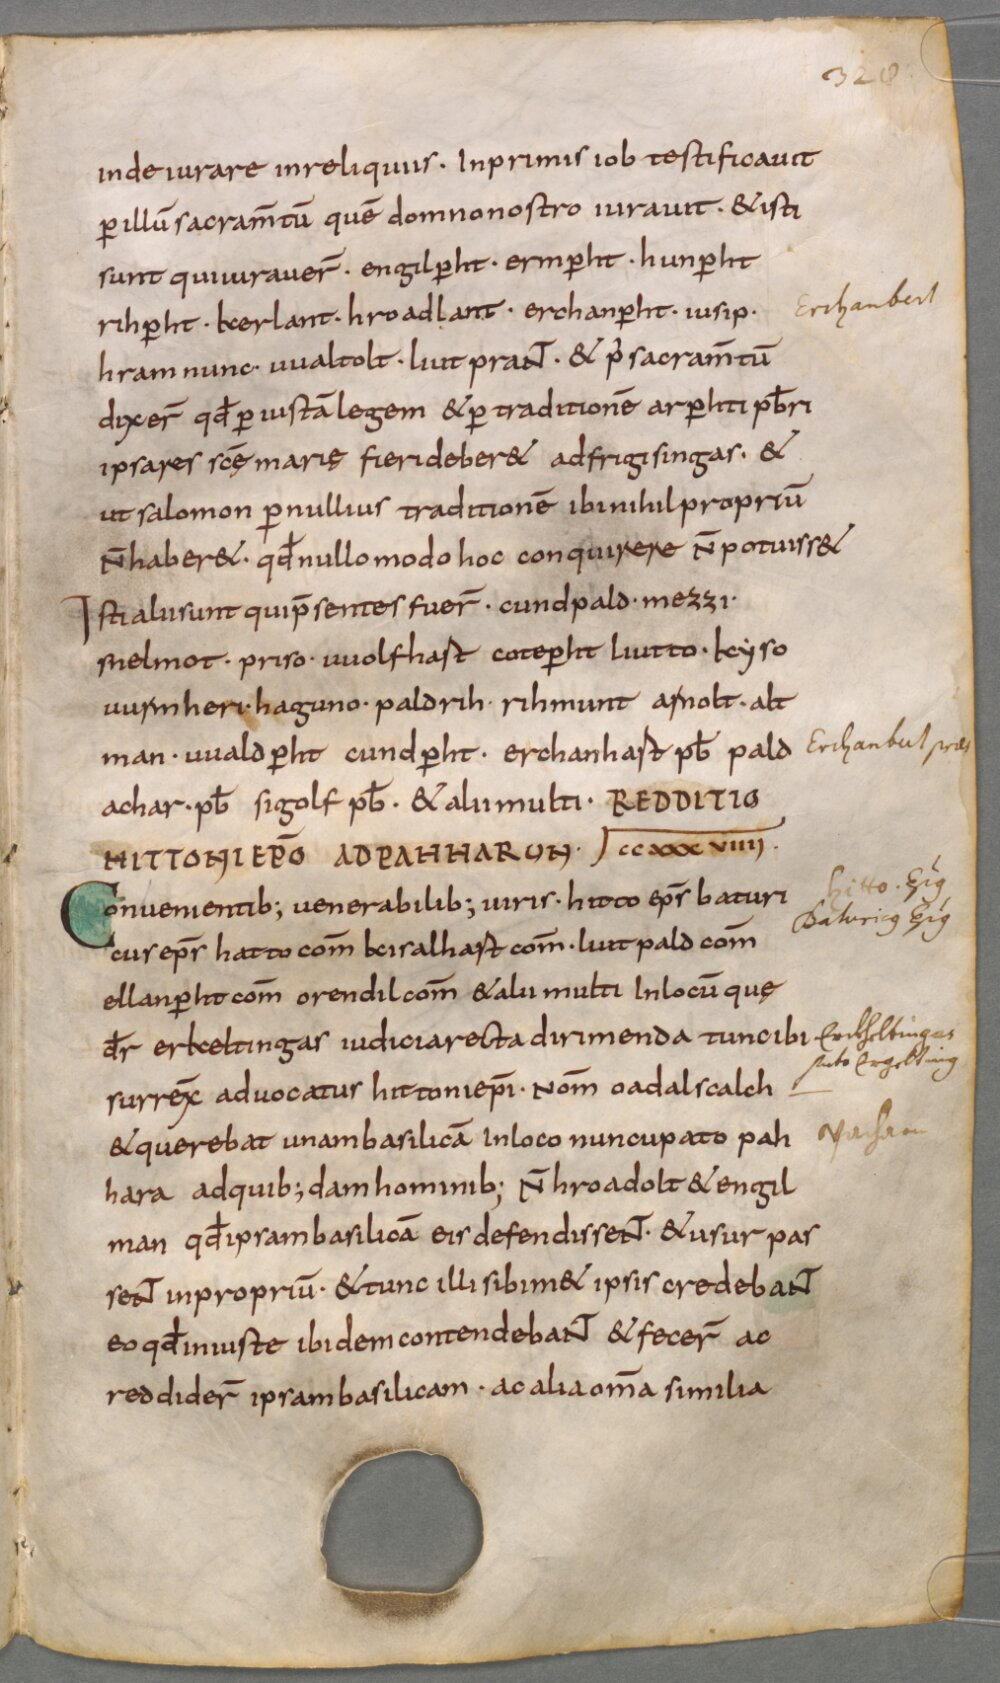 320
inde iurare in reliquiis · Inprimis iob testificavit
ꝑ illū sacram̄tū quē domno nostro iuravit · & isti
sunt qui iuraver̄ · engilꝑht · ermꝑht · hunꝑht
rihꝑht · kerlant · hroadlant · erchanꝑht · iusip ·
Erchanbert
hram nunc · uualtolt · liutprant · & p̄ sacram̄tū
dixer̄ qđ ꝑ iustā legem & ꝑ traditionē arꝑhti pb̄ri
ipsa res scę̄ marię fieri deber& ad frigisingas · &
ut salomon ꝑ nullius traditionē ibi nihil propriū
n̄ haber& · qđ nullo modo hoc conquirere n̄ potuiss&
Isti alii sunt qui p̄sentes fuer̄ · cundpald · mezzi ·
snelmot · priso · uuolfhast coteꝑht liutto · keyso
uurmheri · haguno · paldrih · rihmunt arnolt · alt
man · uualdꝑht cundꝑht · erchanhast pb̄ pald
achar · pb̄ sigolf pb̄ · & alii multi · REDDITIO
HITTONI EP̄O AD PAHHARUN · ccxxxviiii ·
Convenientib; venerabilib; viris · hitto ep̄s baturi
hitto · Ep̄s
cus ep̄s hatto com̄ kisalhast com̄ · liutpald com̄
Baturicus Ep̄s
ellanꝑht com̄ orendil com̄ & alii multi In locū quę
dr̄ erkeltingas iudicia recta dirimenda tunc ibi
surrex̄ advocatus hittoni ep̄i · nom̄ oadalscalch
& querebat unam basilicā In loco nuncupato pah
hara ad quib;dam hominib; n̄ hroadolt & engil
man qđ ipsam basilicā eis defendissent · & usurpas
sent in propriū · & tunc illi sibim& ipsis credebant
eo qđ iniuste ibidem contendebant & fecer̄ ac
reddider̄ ipsam basilicam · ac alia om̄a similia